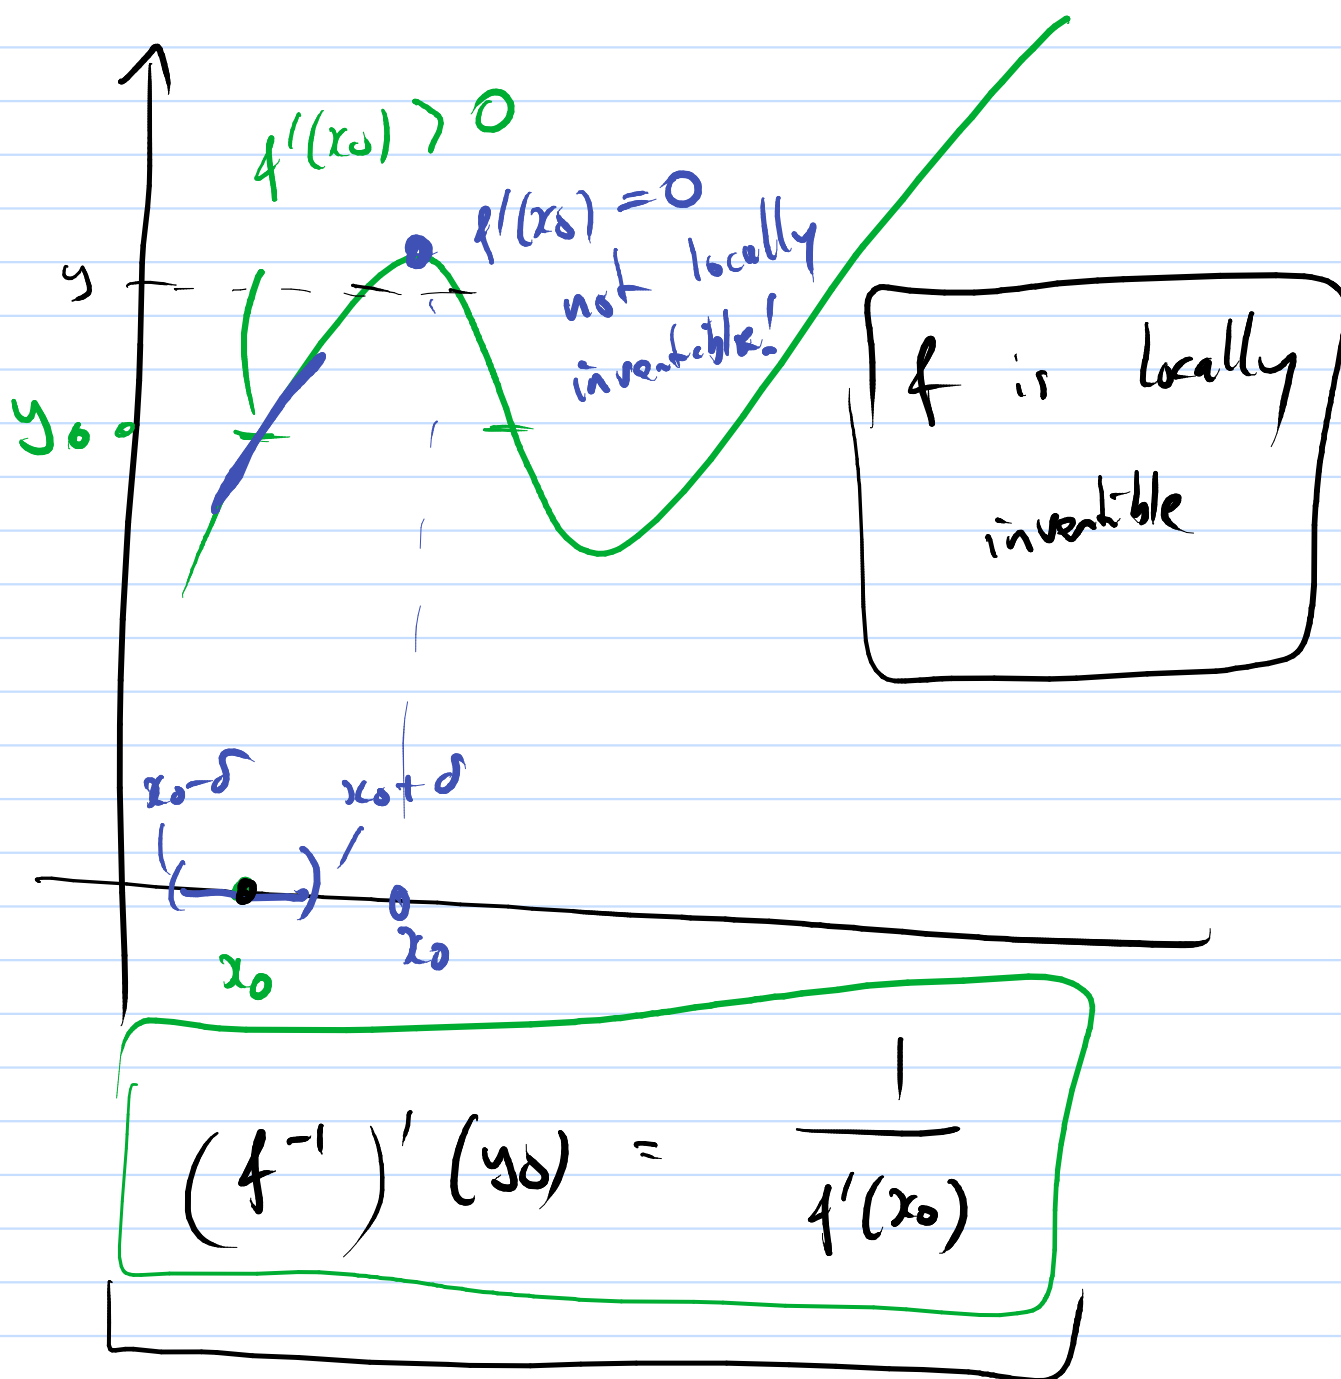 f'(x₀) > 0
f'(x₀) = 0
not locally
invertible!
y
y₀
f is locally
invertible
x₀-δ
x₀+δ
x₀
x₀
(f⁻¹)'(y₀) = 1/f'(x₀)